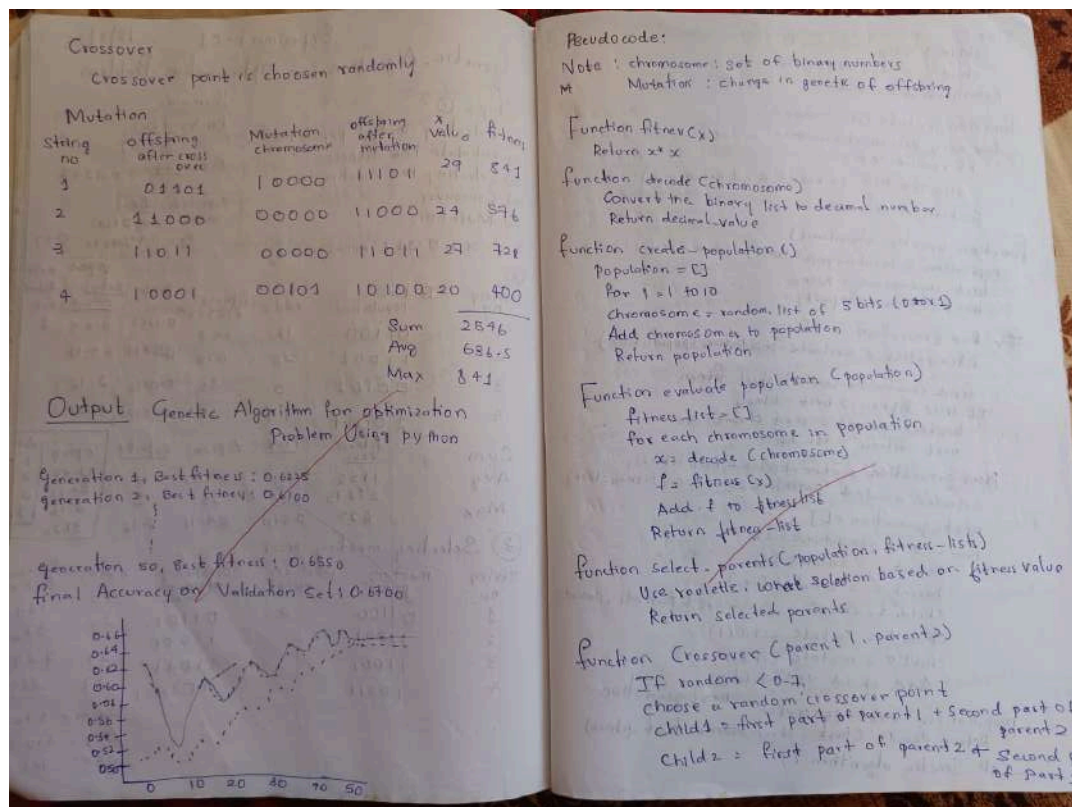 Crossover
Crossover point is choosen randomly
Mutation
String no offspring after cross over Mutation chromosome offspring after mutation x value fitness
1 01101 10000 11101 29 841
2 11000 00000 11000 24 576
3 11011 00000 11011 27 729
4 10001 00101 10100 20 400
Sum 2546
Avg 636.5
Max 841
Output Genetic Algorithm for optimization
Problem Using python
Generation 1, Best fitness : 0.6225
generation 2, Best fitness : 0.6100
generation 50, Best fitness : 0.6550
final Accuracy on Validation set: 0.6700
0.66
0.64
0.62
0.60
0.56
0.54
0.52
0.50
0 10 20 50
Pseudocode:
Note : chromosome : set of binary numbers
Mutation : change in genetic of offspring
Function fitness(x)
Return x* x
function decode (chromosome)
Convert the binary list to decimal number
Return decimal-value
function create-population ()
population = []
for i = 1 to 10
chromosome = random list of 5 bits (0 to 1)
Add chromosomes to population
Return population
Function evaluate population (population)
fitness-list = []
for each chromosome in population
x = decode (chromosome)
f = fitness (x)
Add f to fitnesslist
Return fitness-list
function select-parents (population, fitness-lists)
Use roulette, selection based on fitness value
Return selected parents
function Crossover (parent 1, parent 2)
If random < 0.7,
choose a random crossover point
child1 = first part of parent 1 + Second part of
parent 2
Child 2 = first part of parent 2 + Second
of part